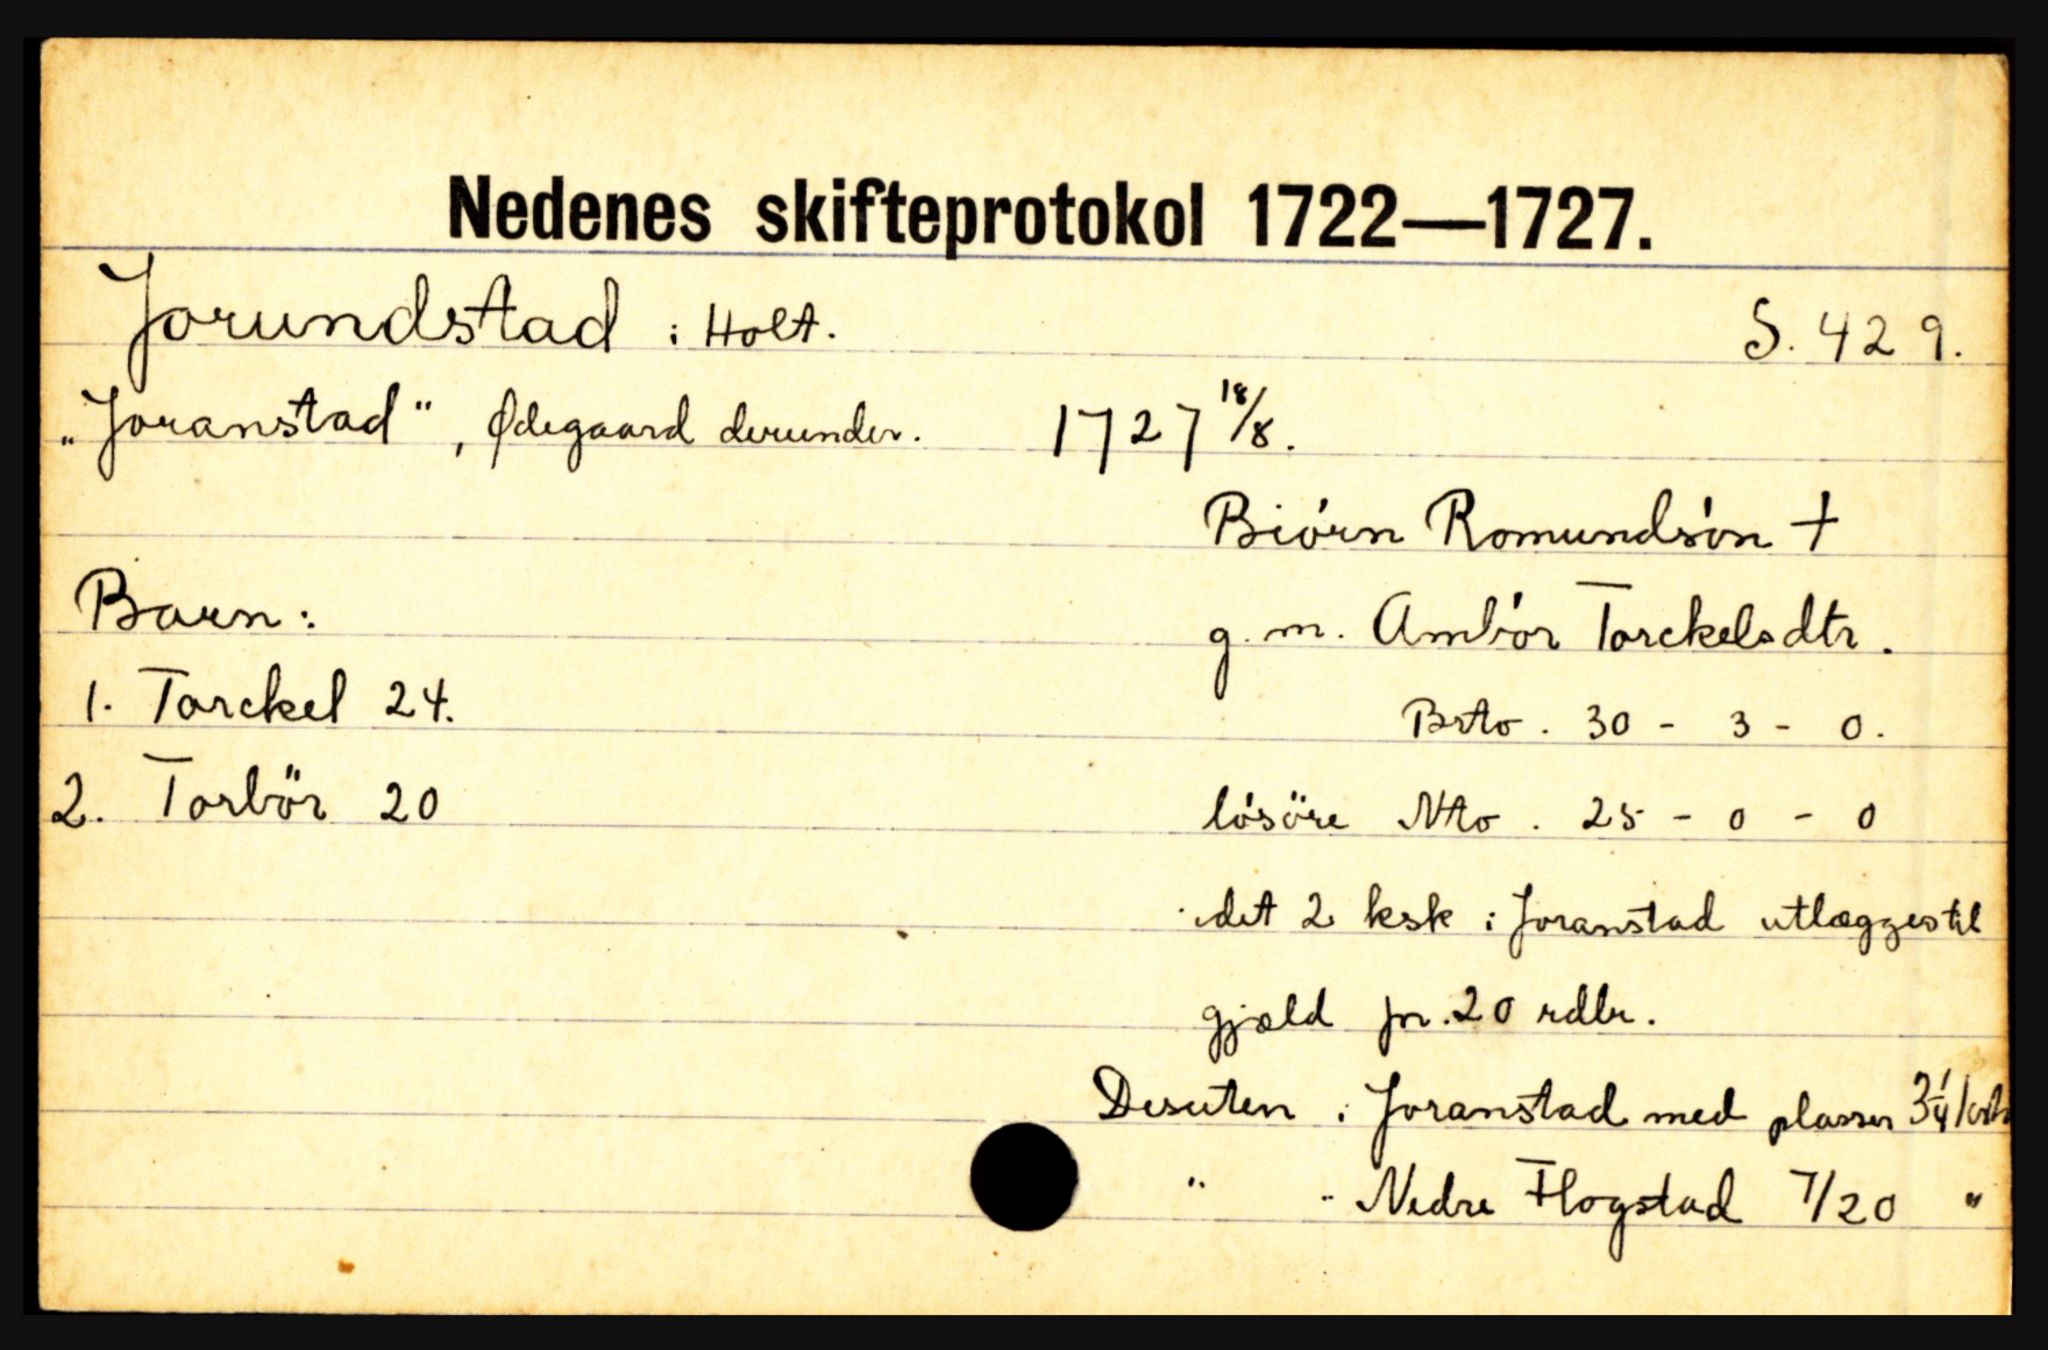 Nedenes skifteprotokol 1722—1727.
Jorundstad i Holt. S. 429.
„Joranstad", Ødegaard derunder. 1727 18/8.
Biörn Romundsön †
Barn: g. m. Ambör Torckelsdtr.
1. Torckel 24. Brto. 30 - 3 - 0.
2. Torbör 20 lösöre Nto. 25 - 0 - 0
idet 2 ksk i Joranstad utlægges til
gjæld for 20 rdlr.
Desuten i Joranstad med plasser 3 1/4
" - Nedre Flogstad 7/20 "